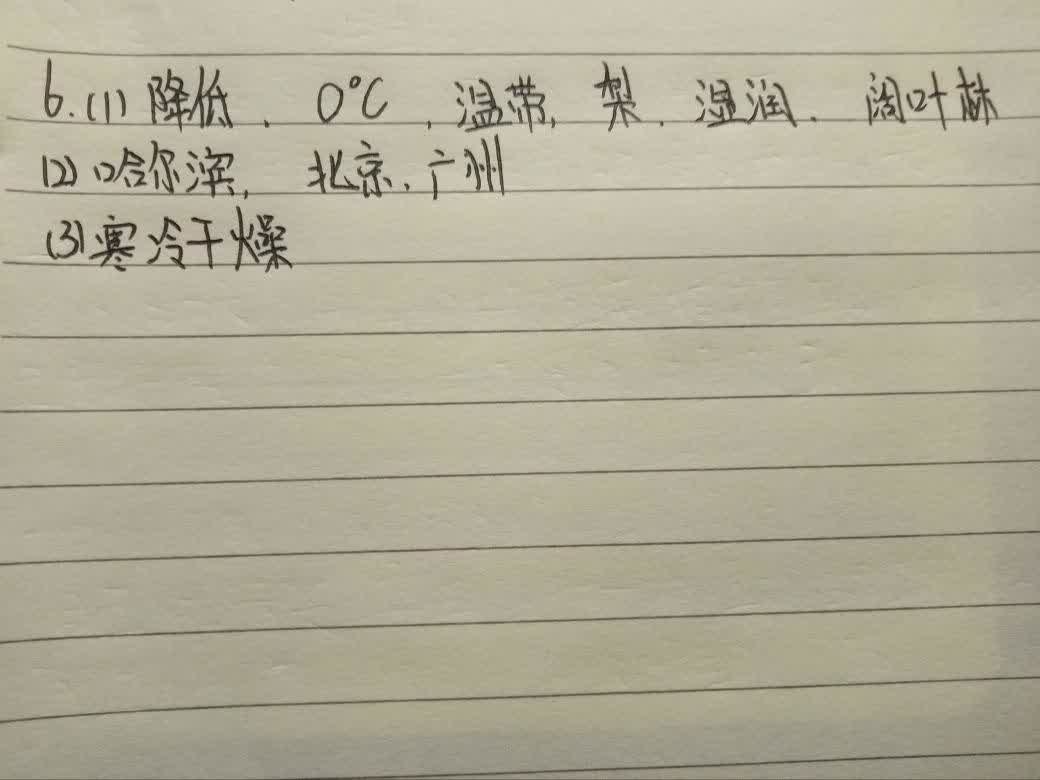 6.(1)降低、0℃,温带,梨、湿润、阔叶林
(2)哈尔滨,北京、广州
(3)寒冷干燥